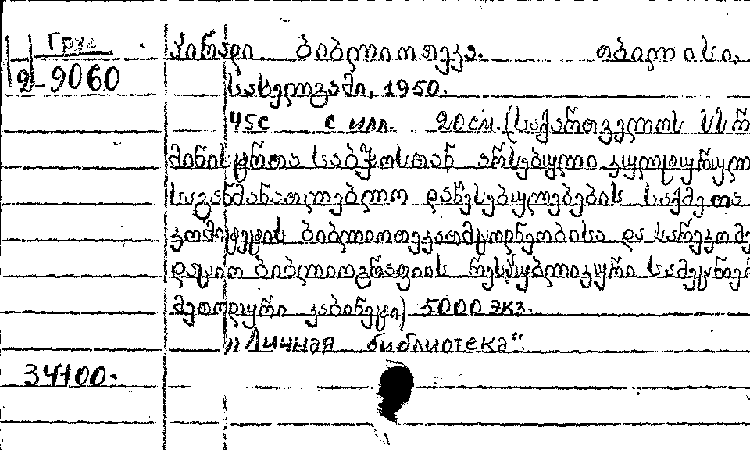 Груз
2-9060
პირადი ბიბლიოთეკა. თბილისი,
სახელგამი, 1950.
45с с илл. 20см. (საქართველოს სსრ
მინისტრთა საბჭოსთან არსებული კულტურულ
საგანმანათლებლო დაწესებულებების საქმეთა
კომიტეტის ბიბლიოთეკათმცოდნეობისა და სარეკომე
დაციო ბიბლიოგრაფიის რესპუბლიკური სამეცნიერ
მეთოდური კაბინეტი) 5000 экз.
„Личная библиотека".
34100.